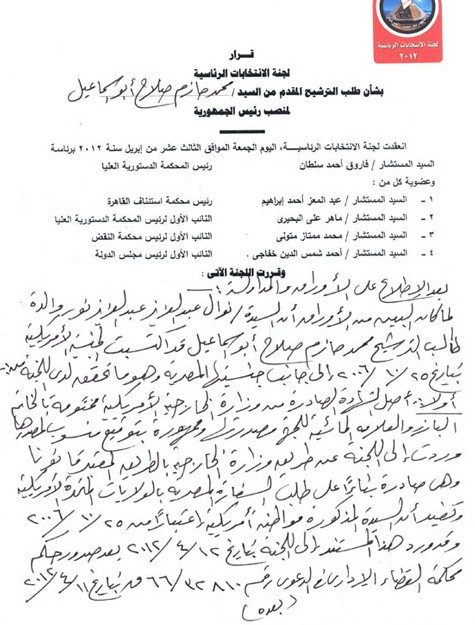 لجنة الانتخابات الرئاسية
٢٠١٢
قـــرار
لجنة الانتخابات الرئاسية
بشأن طلب الترشيح المقدم من السيد / محمد حازم صلاح أبو إسماعيل
لمنصب رئيس الجمهورية
انعقدت لجنة الانتخابات الرئاسيـــة، اليوم الجمعة الموافق الثالث عشر من إبريل سنة ٢٠١٢ برئاسة
السيد المستشار / فاروق أحمد سلطان رئيس المحكمة الدستورية العليا
وعضوية كل من :
١ - السيد المستشار / عبد المعز أحمد إبراهيم رئيس محكمة استئناف القاهرة
٢ - السيد المستشار / ماهر على البحيرى النائب الأول لرئيس المحكمة الدستورية العليا
٣ - السيد المستشار / محمد ممتاز متولى النائب الأول لرئيس محكمة النقض
٤ - السيد المستشار / أحمد شمس الدين خفاجى النائب الأول لرئيس مجلس الدولة
وقـررت اللجنة الآتى :
بعد الإطلاع على الأوراق والمداولة :
لما كان البين من الأوراق أن السيدة / نوال عبد العزيز عبد العزيز نور والدة
طالب الترشيح محمد حازم صلاح أبو إسماعيل قد اكتسبت الجنسية الأمريكية
بتاريخ ٢٥/١٠/٢٠٠٦ إلى جانب جنسيتها المصرية وهو ما تحقق لدى اللجنة من :-
أولاً : أصل الشهادة الصادرة من وزارة الخارجية الأمريكية مختومة بالخاتم
البارز والعلامة المائية للجهة مصدرتها وممهورة بتوقيع منسوب لمصدرها
وردت إلى اللجنة عن طريق وزارة الخارجية بالطريق المقرر قانونا
وهى صادرة بناءً على طلب السفارة المصرية بالولايات المتحدة الأمريكية
وتفيد أن السيدة المذكورة مواطنة أمريكية اعتباراً من ٢٥/١٠/٢٠٠٦
وقد ورد هذا المستند إلى اللجنة بتاريخ ١٢/٤/٢٠١٢ بعد صدور حكم
محكمة القضاء الإدارى فى الدعوى رقم ٣٢٨١٠/٦٦ ق بتاريخ ١١/٤/٢٠١٢